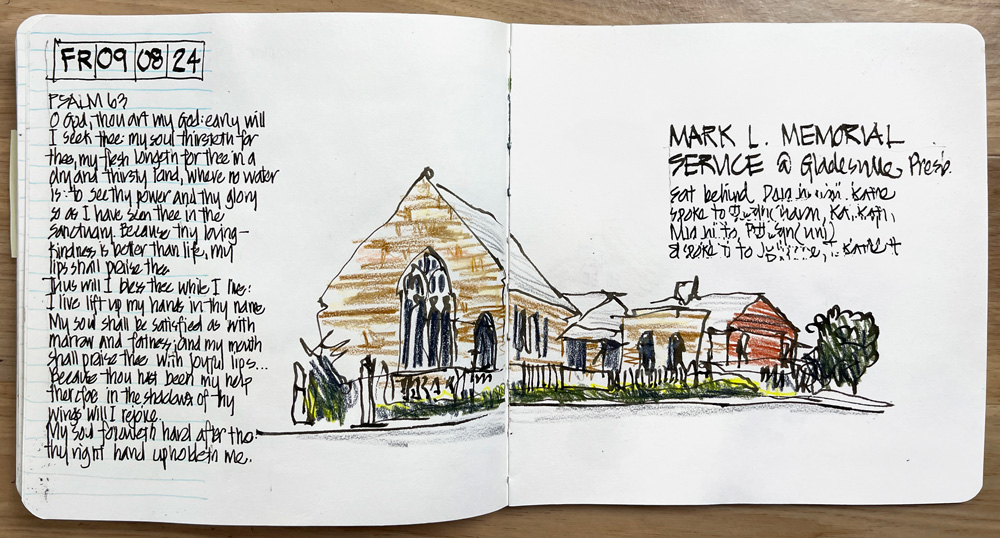 FR 09 08 24
PSALM 63
O God, thou art my God: early will
I seek thee: my soul thirsteth for
thee, my flesh longeth for thee in a
dry and thirsty land, where no water
is: to see thy power and thy glory
so as I have seen thee in the
sanctuary. Because thy loving-
kindness is better than life, my
lips shall praise thee
Thus will I bless thee while I live:
I live lift up my hands in thy name
My soul shall be satisfied as with
marrow and fatness; and my mouth
shall praise thee with joyful lips...
Because thou hast been my help
therefore in the shadows of thy
wings will I rejoice.
My soul followeth hard after thee:
thy right hand upholdeth me.
MARK L. MEMORIAL
SERVICE @ Gladesville Presb.
sat behind Katie
spoke to
spoke to